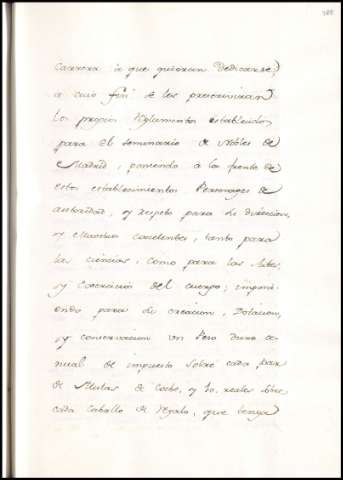 carrera á que quisieran dedicarse,
a cuio fin se les prescriviran
los propios Reglamentos establecidos
para el seminario de Nobles de
Madrid, poniendo á los frente de
estos establecimientos Personages de
autoridad, y respeto para la direccion,
y Maestros excelentes, tanto para
las ciencias, como para las Artes,
y del cuerpo; imponi-
endo para la creacion, Dotacion,
y conservacion un Peso duro a-
nual de impuesto sobre cada par
de Mulas de Coche, y 10. reales sobre
cada Caballo de Regalo, que tenga